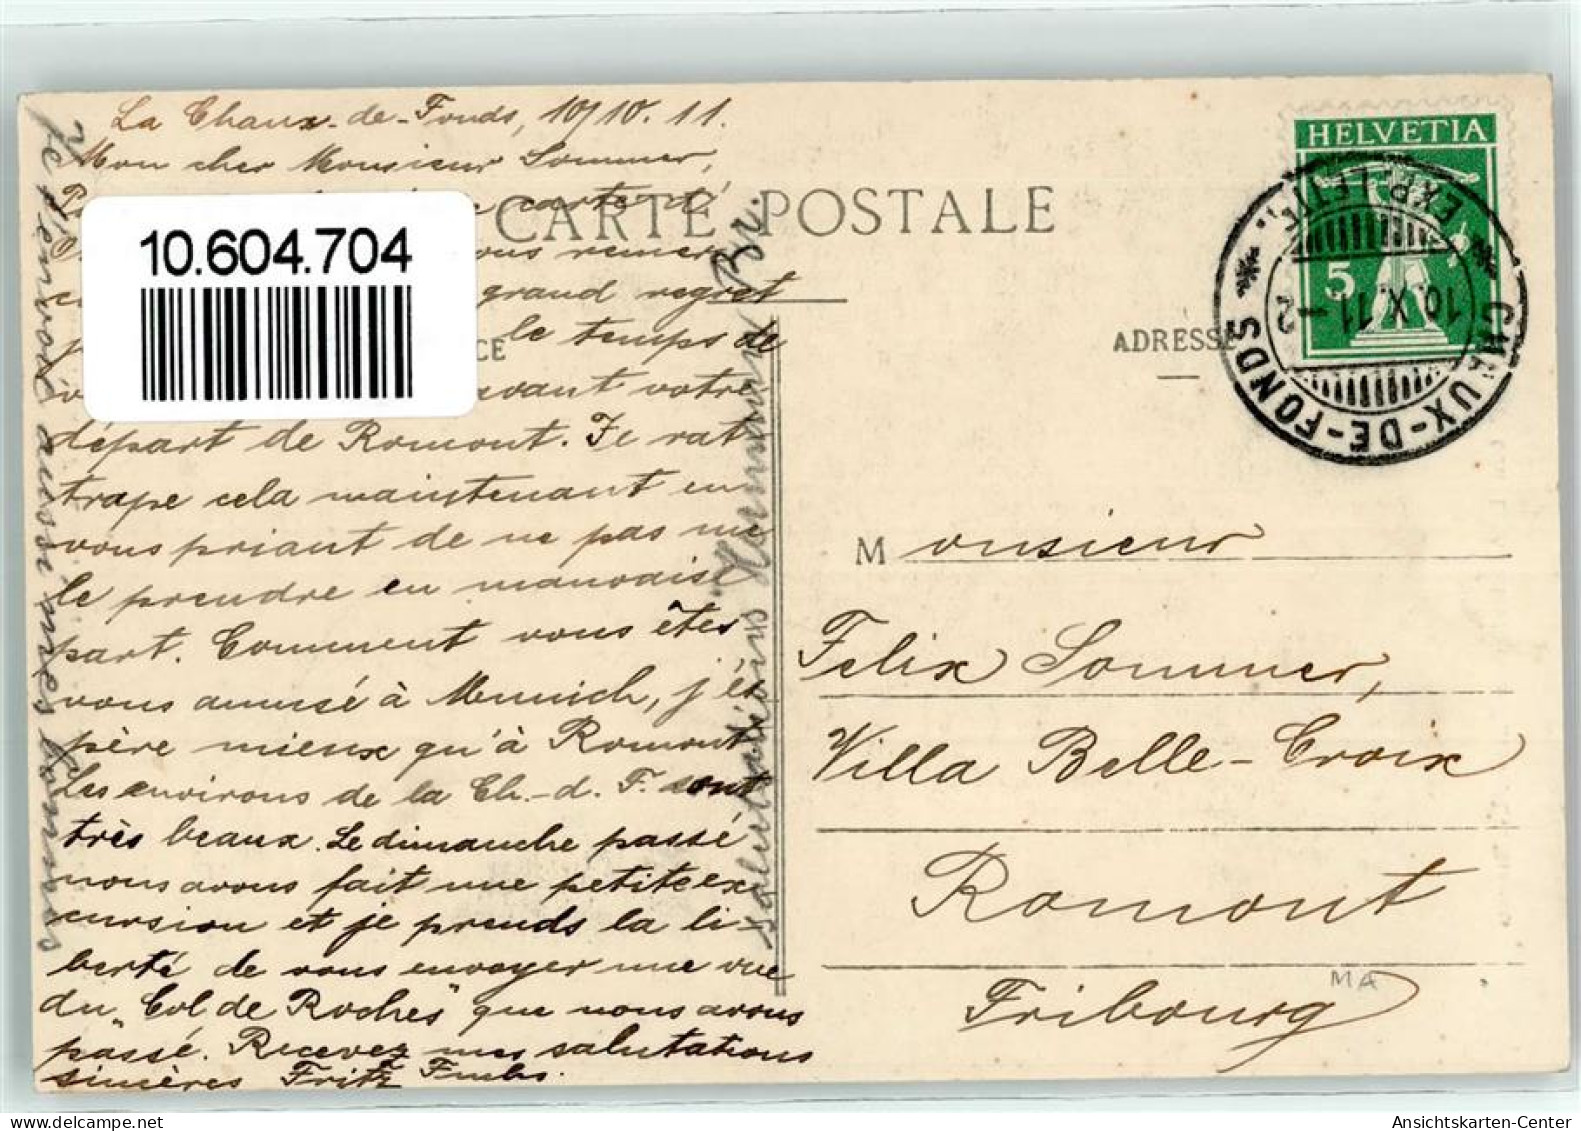 La Chaux-de-Fonds, 10/10. 11.
Mon cher Monsieur Sommer,
carte d'
vous remer
grand regret
le temps de
avant votre
départ de Romont. Je rat-
trape cela maintenant en
vous priant de ne pas me
le prendre en mauvaise
part. Comment vous êtes
vous amusé à Munich, j'es
père mieux qu'à Romont
Les environs de la Ch.-d. F. sont
très beaux. Le dimanche passé
nous avons fait une petite ex-
cursion et je prends la li-
berté de vous envoyer une vue
du „Col de Roches" que nous avons
passé. Recevez mes salutations
sincères Fritz
Je t'envoie aussi mes bonnes
salutations Hermann Br.
10.604.704
CARTE POSTALE
CE
ADRESSE
HELVETIA
5
CHAUX-DE-FONDS
EXP. LETTR.
10.X.11-2
Monsieur
Felix Sommer,
Villa Belle-Croix
Romont
Fribourg
MA
Ansichtskarten-Center